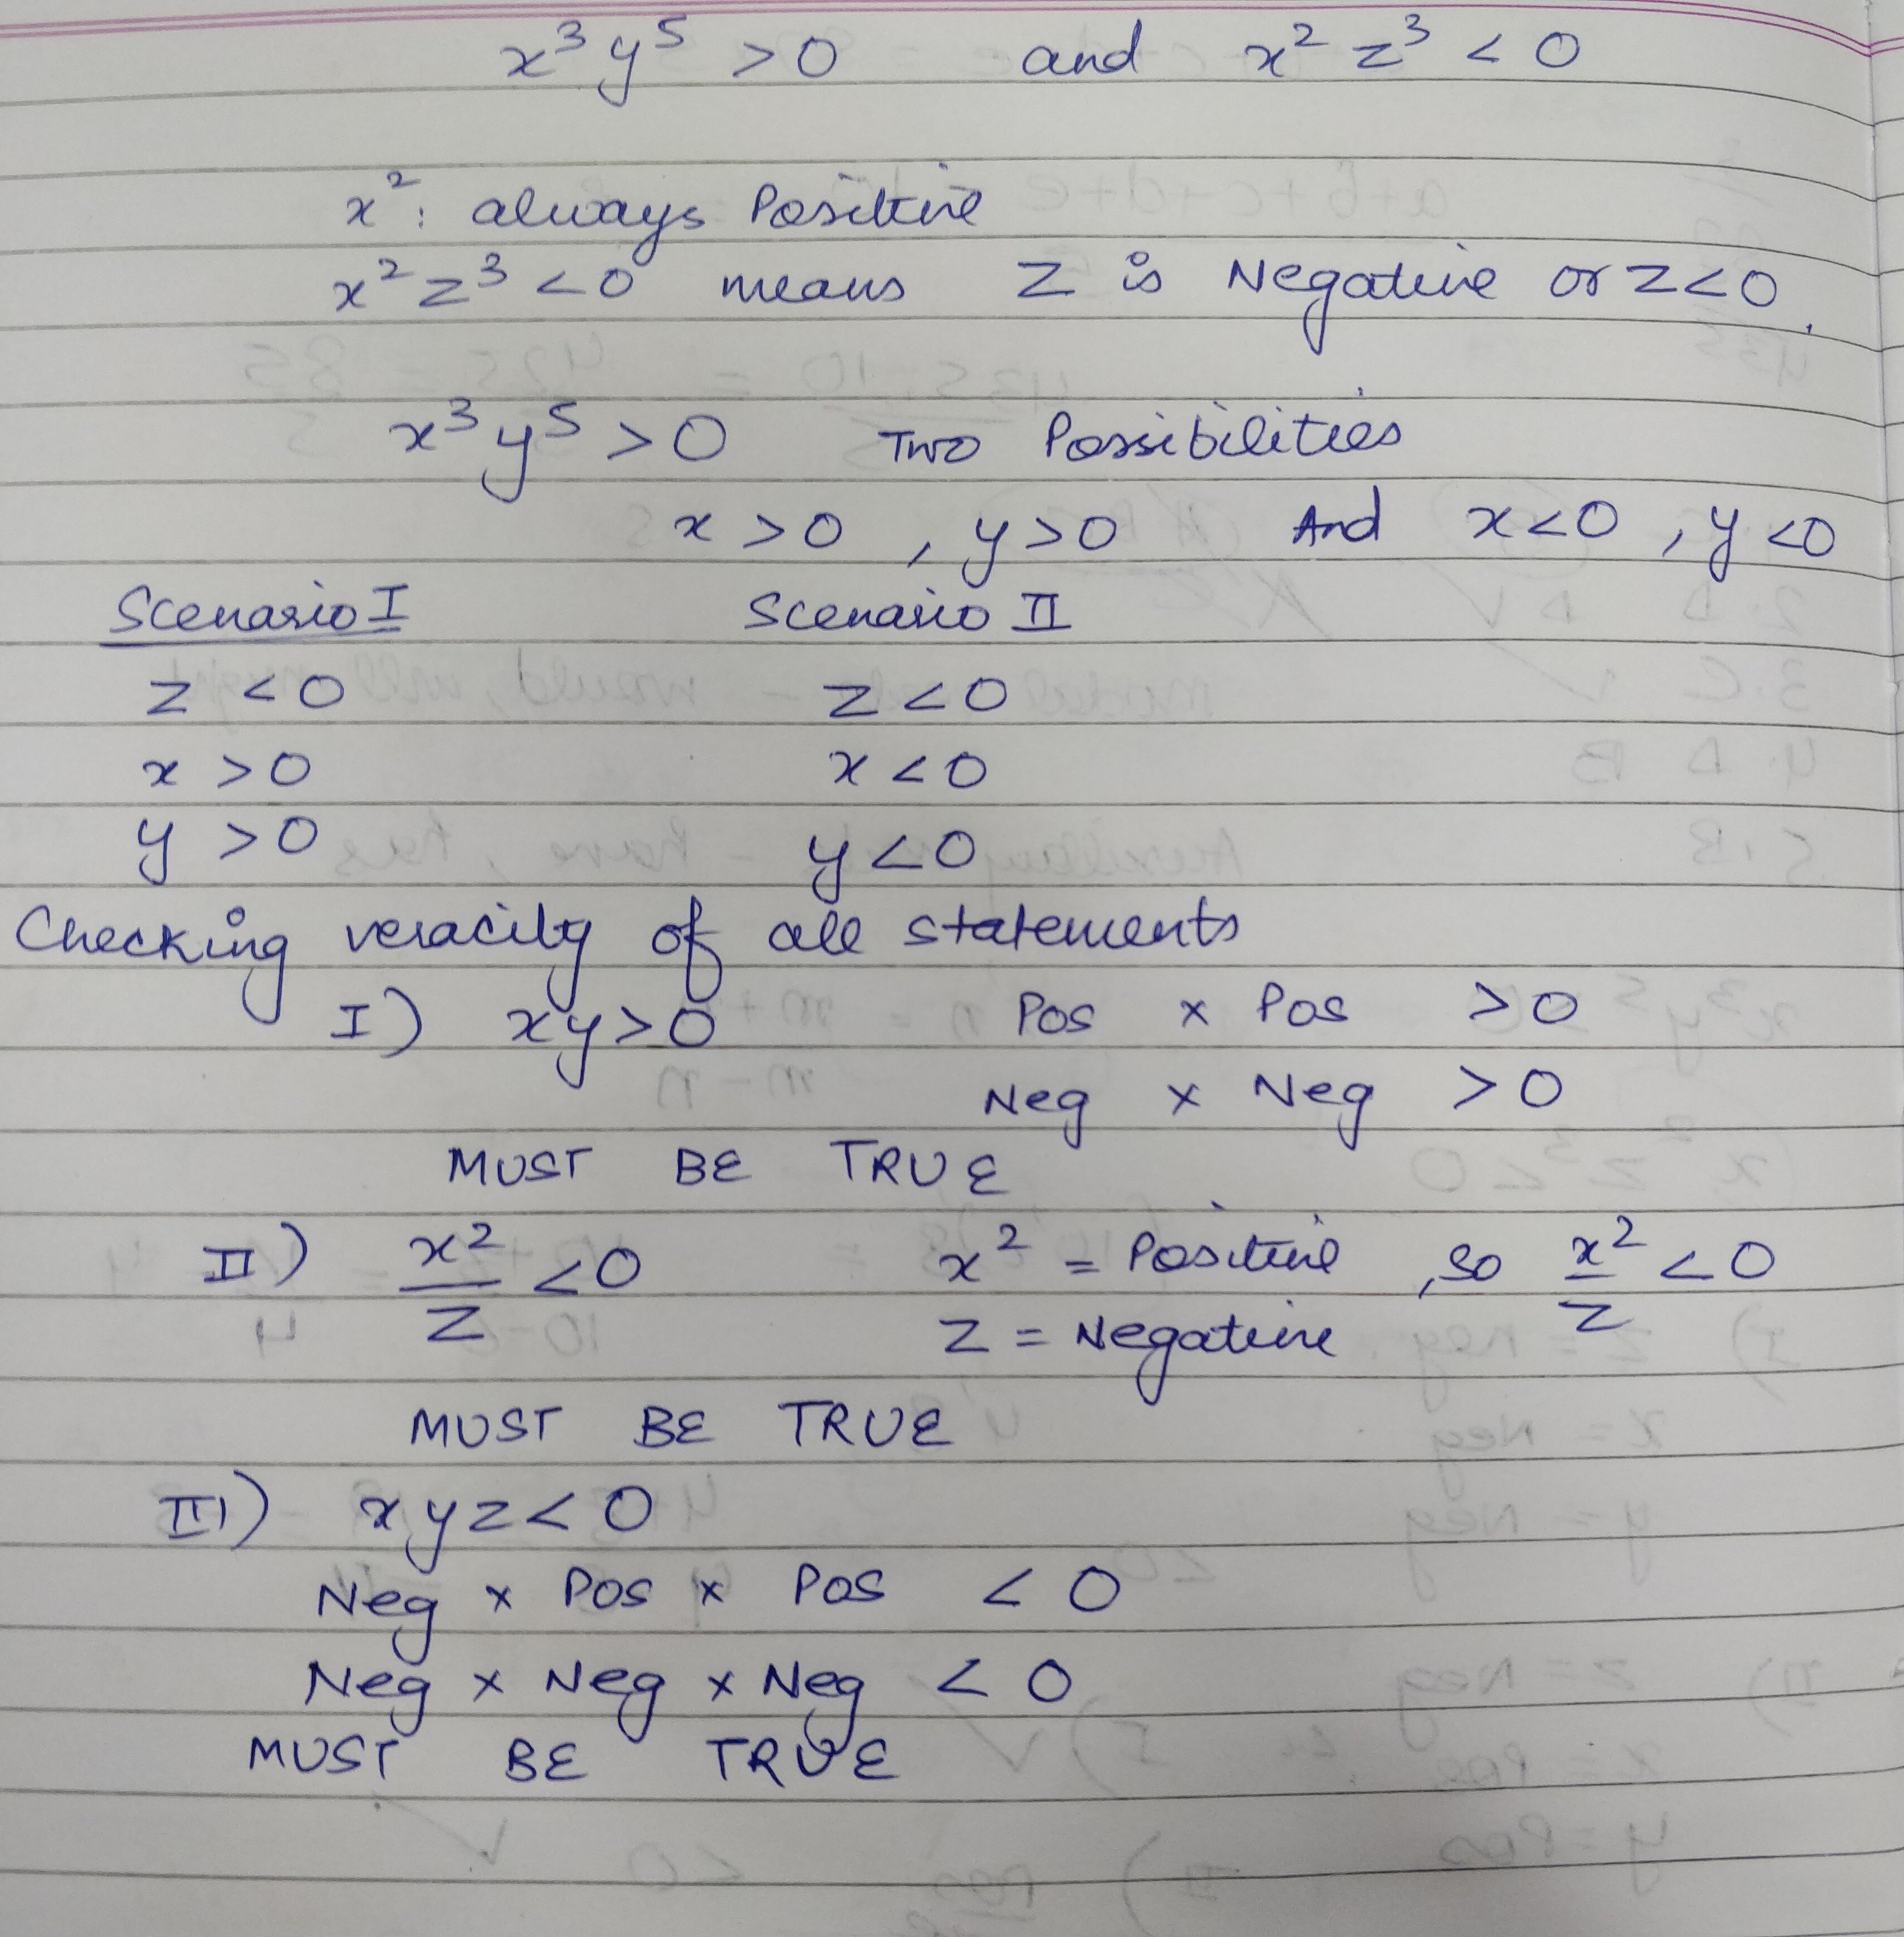 x³y⁵ > 0 and x² z³ < 0
x² : always Positive
x² z³ < 0 means Z is Negative or z < 0.
x³ y⁵ > 0 Two Possibilities
x > 0 , y > 0 And x < 0 , y < 0
Scenario I Scenario II
z < 0 z < 0
x > 0 x < 0
y > 0 y < 0
Checking veracity of all statements
I) xy > 0 Pos × Pos > 0
Neg × Neg > 0
MUST BE TRUE
II) x²/z < 0 x² = Positive , so x²/z < 0
z = Negative
MUST BE TRUE
III) xyz < 0
Neg × Pos × Pos < 0
Neg × Neg × Neg < 0
MUST BE TRUE